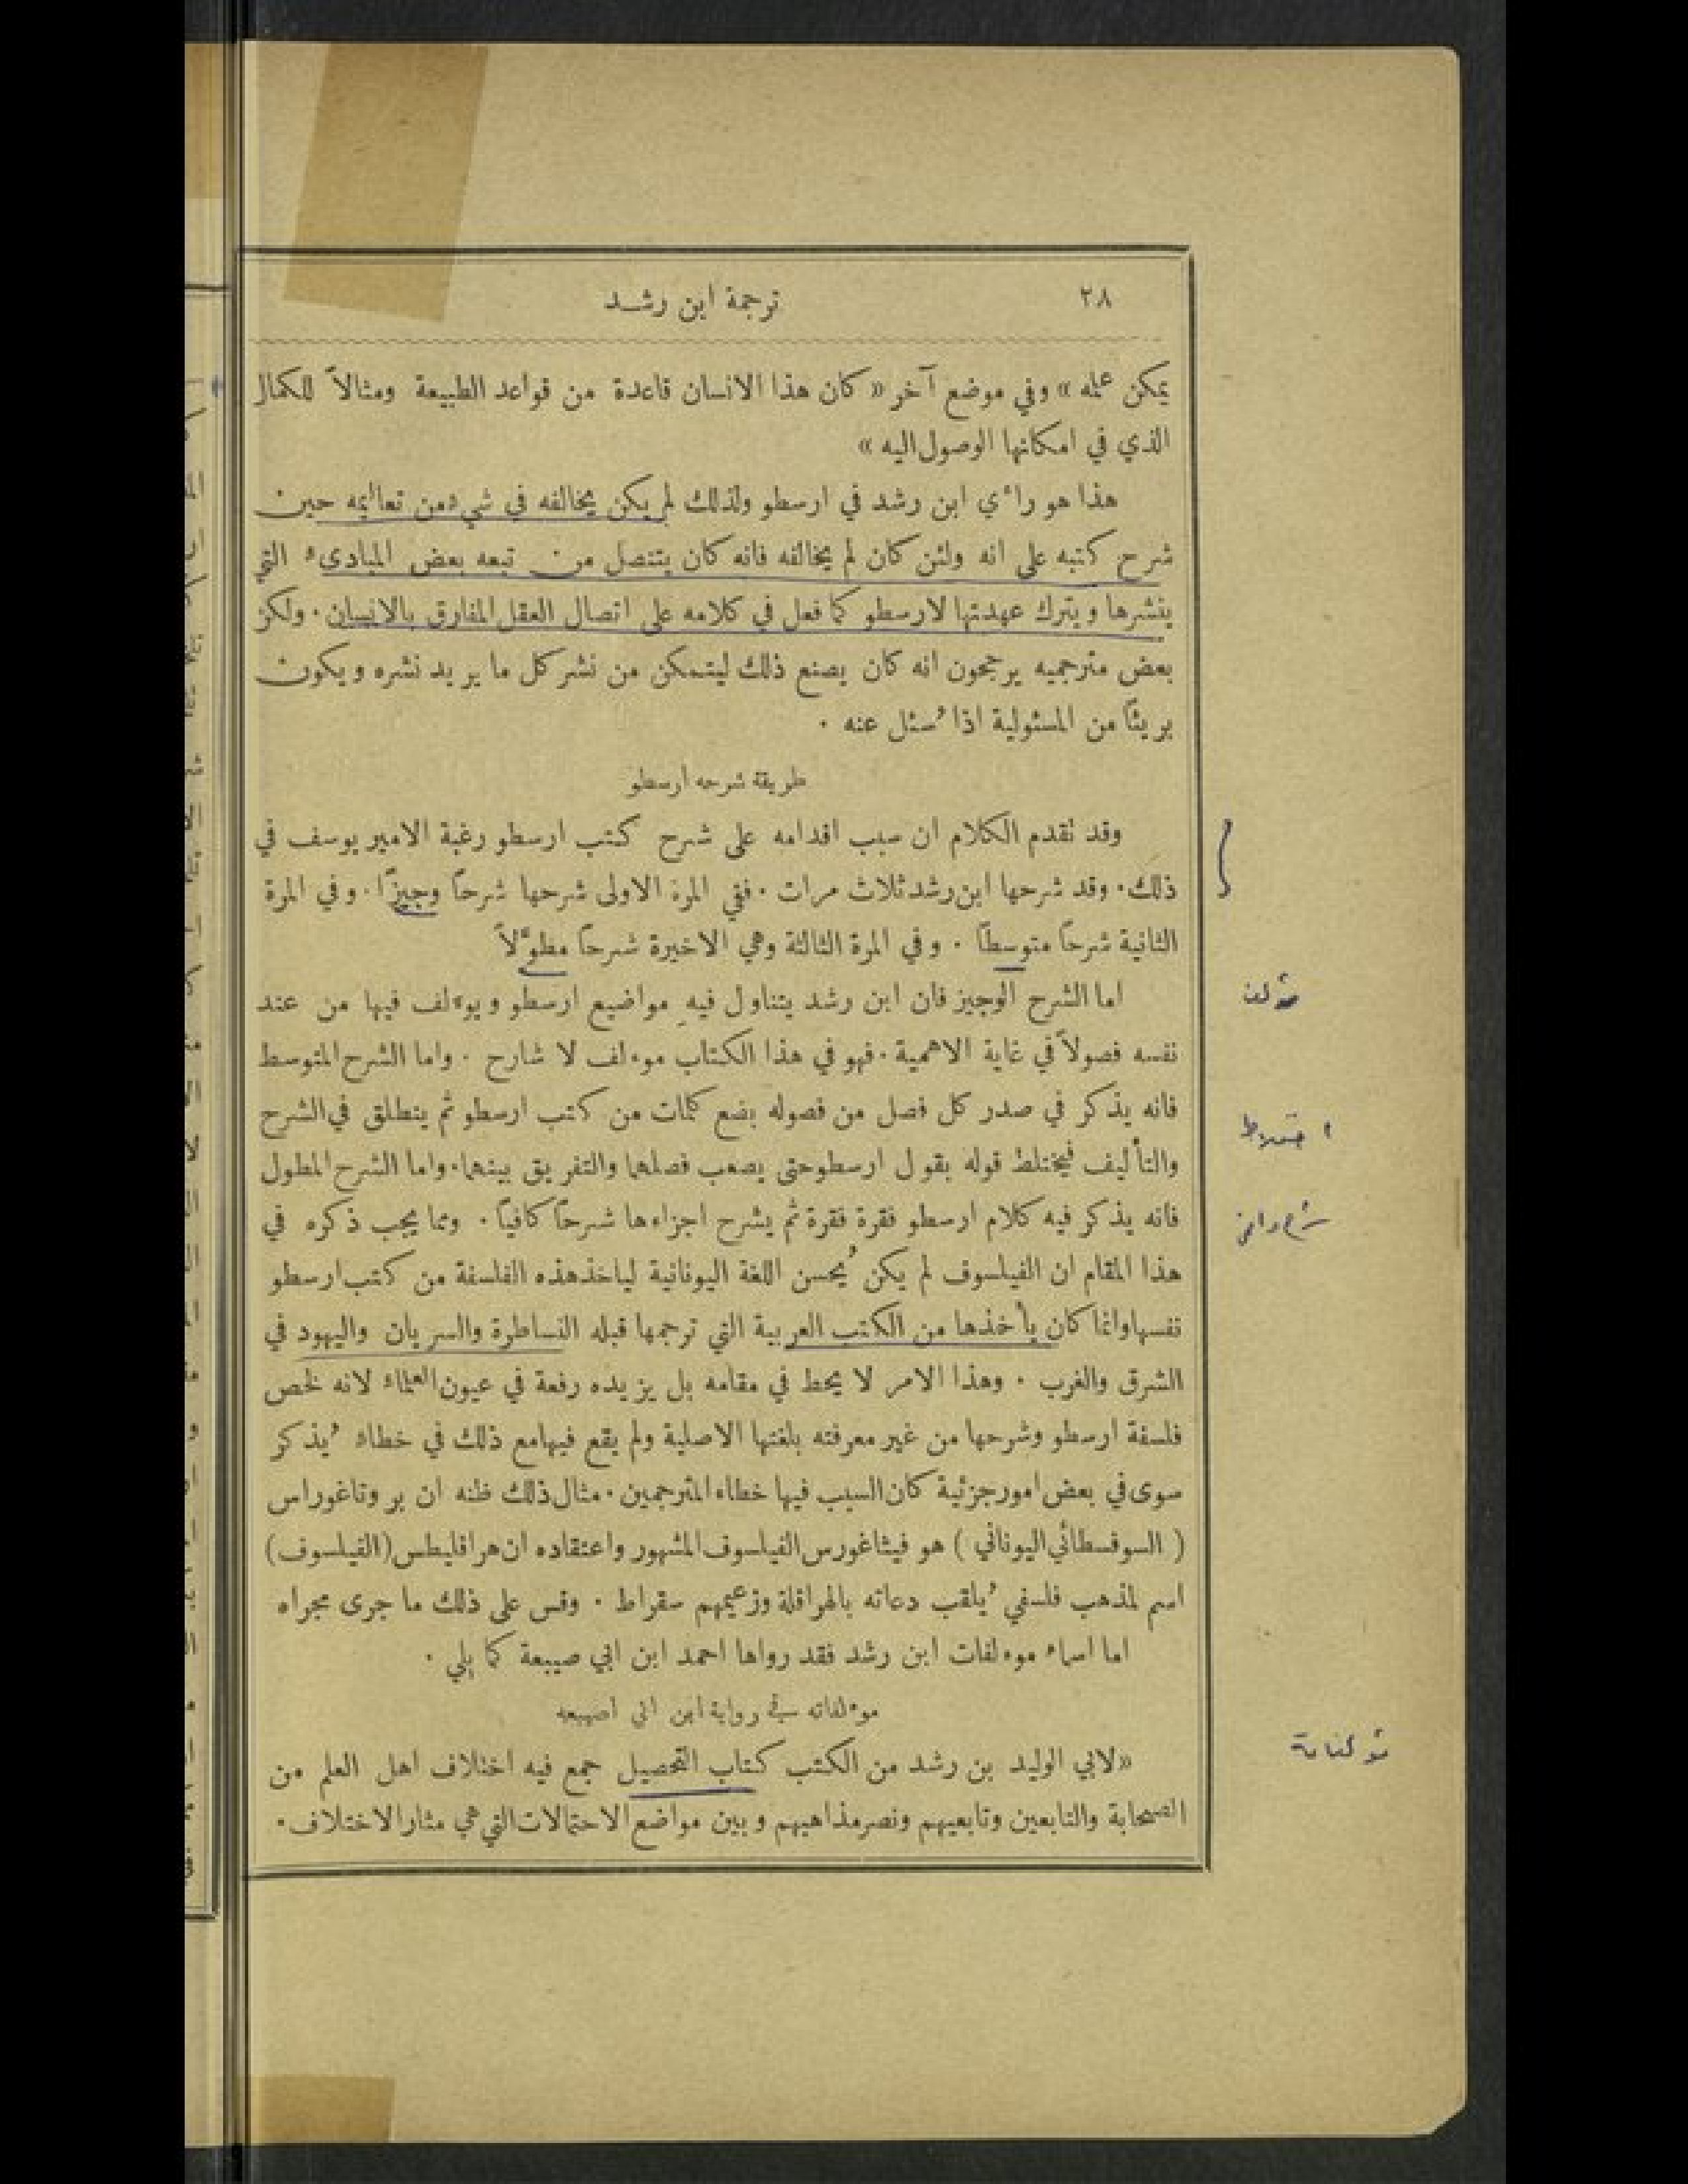 ٢٨
ترجمة ابن رشد
يمكن عمله » وفي موضع آخر « كان هذا الانسان قاعدة من قواعد الطبيعة ومثالاً للكمال
الذي في امكانها الوصول اليه »
هذا هو راءي ابن رشد في ارسطو ولذلك لم يكن يخالفه في شيء من تعاليمه حين
شرح كتبه على انه ولئن كان لم يخالفه فانه كان يتنصل من تبعه بعض المبادىء التي
ينشرها ويترك عهدتها لارسطو كما فعل في كلامه على اتصال العقل المفارق بالانسان . ولكن
بعض مترجميه يرجحون انه كان يصنع ذلك ليتمكن من نشر كل ما يريد نشره ويكون
بريئاً من المسئولية اذا ُسئل عنه .
طريقة شرحه ارسطو
وقد تقدم الكلام ان سبب اقدامه على شرح كتب ارسطو رغبة الامير يوسف في
ذلك . وقد شرحها ابن رشد ثلاث مرات . ففي المرة الاولى شرحها شرحاً وجيزاً . وفي المرة
الثانية شرحاً متوسطاً . وفي المرة الثالثة وهي الاخيرة شرحاً مطوَّلاً
اما الشرح الوجيز فان ابن رشد يتناول فيهِ مواضيع ارسطو ويوءلف فيها من عند
مؤلف
نفسه فصولاً في غاية الاهمية . فهو في هذا الكتاب موءلف لا شارح . واما الشرح المتوسط
فانه يذكر في صدر كل فصل من فصوله بضع كلمات من كتب ارسطو ثم ينطلق في الشرح
اختلاط
والتأليف فيختلط قوله بقول ارسطو حتى يصعب فصلهما والتفريق بينهما . واما الشرح المطول
فانه يذكر فيه كلام ارسطو فقرة فقرة ثم يشرح اجزاءها شرحاً كافياً . ومما يجب ذكره في
هذا المقام ان الفيلسوف لم يكن ُيحسن اللغة اليونانية لياخذ هذه الفلسفة من كتب ارسطو
نفسها وانما كان يأخذها من الكتب العربية التي ترجمها قبله النساطرة والسريان واليهود في
الشرق والغرب . وهذا الامر لا يحط في مقامه بل يزيده رفعة في عيون العلماء لانه لخص
فلسفة ارسطو وشرحها من غير معرفته بلغتها الاصلية ولم يقع فيها مع ذلك في خطاء ُيذكر
سوى في بعض امور جزئية كان السبب فيها خطاء المترجمين . مثال ذلك ظنه ان بروتاغوراس
( السوفسطائي اليوناني ) هو فيثاغورس الفيلسوف المشهور واعتقاده ان هراقليطس (الفيلسوف)
اسم لمذهب فلسفي ُيلقب دعاته بالهراقلة وزعيمهم سقراط . وقس على ذلك ما جرى مجراه
اما اسماء موءلفات ابن رشد فقد رواها احمد ابن ابي صيبعة كما يلي .
موءلفاته في رواية ابن ابي اصيبعه
«لابي الوليد بن رشد من الكتب كتاب التحصيل جمع فيه اختلاف اهل العلم من
مؤلفاته
الصحابة والتابعين وتابعيهم ونصر مذاهبهم وبين مواضع الاحتمالات التي هي مثار الاختلاف .